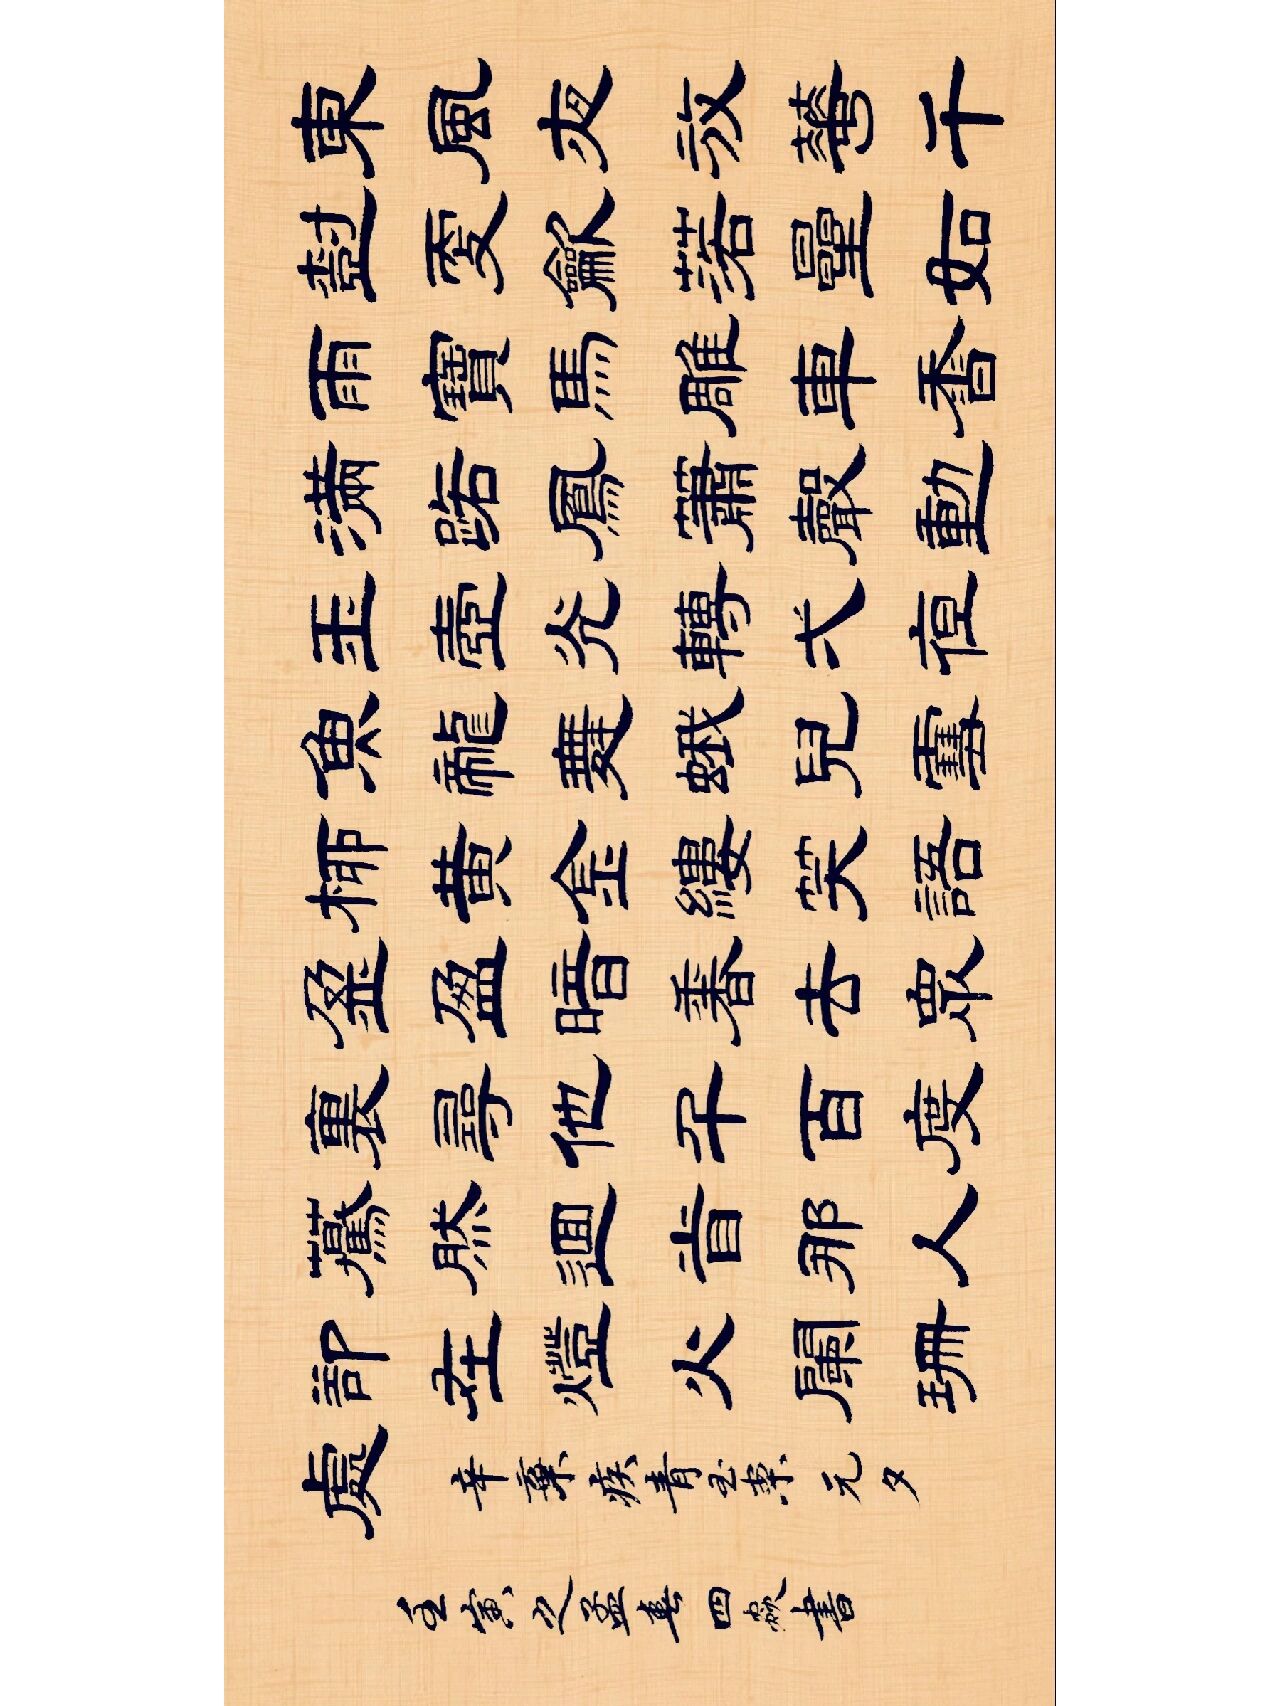 東風夜放華千
尌更龡落曐如
雨寶馬雕車香
滿路鳳簫聲動
玉壺光轉弌亱
魚龍舞蛾兒雪
柳黃金縷笑語
盈盈暗香去眾
裏尋他千百度
驀然迴首那人
郤在燈火闌珊
處
辛棄疾青玉案元夕
壬寅 四 書